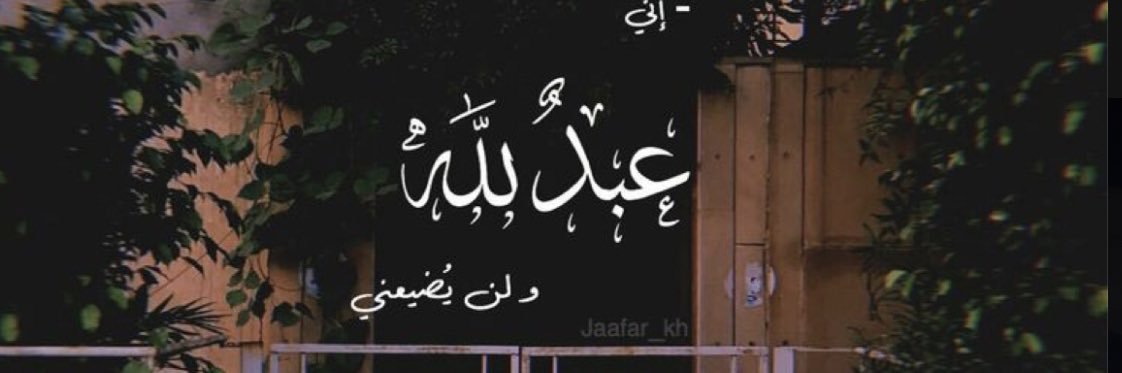 - إني
عبدٌ للَّه
ولن يُضيعني
Jaafar_kh